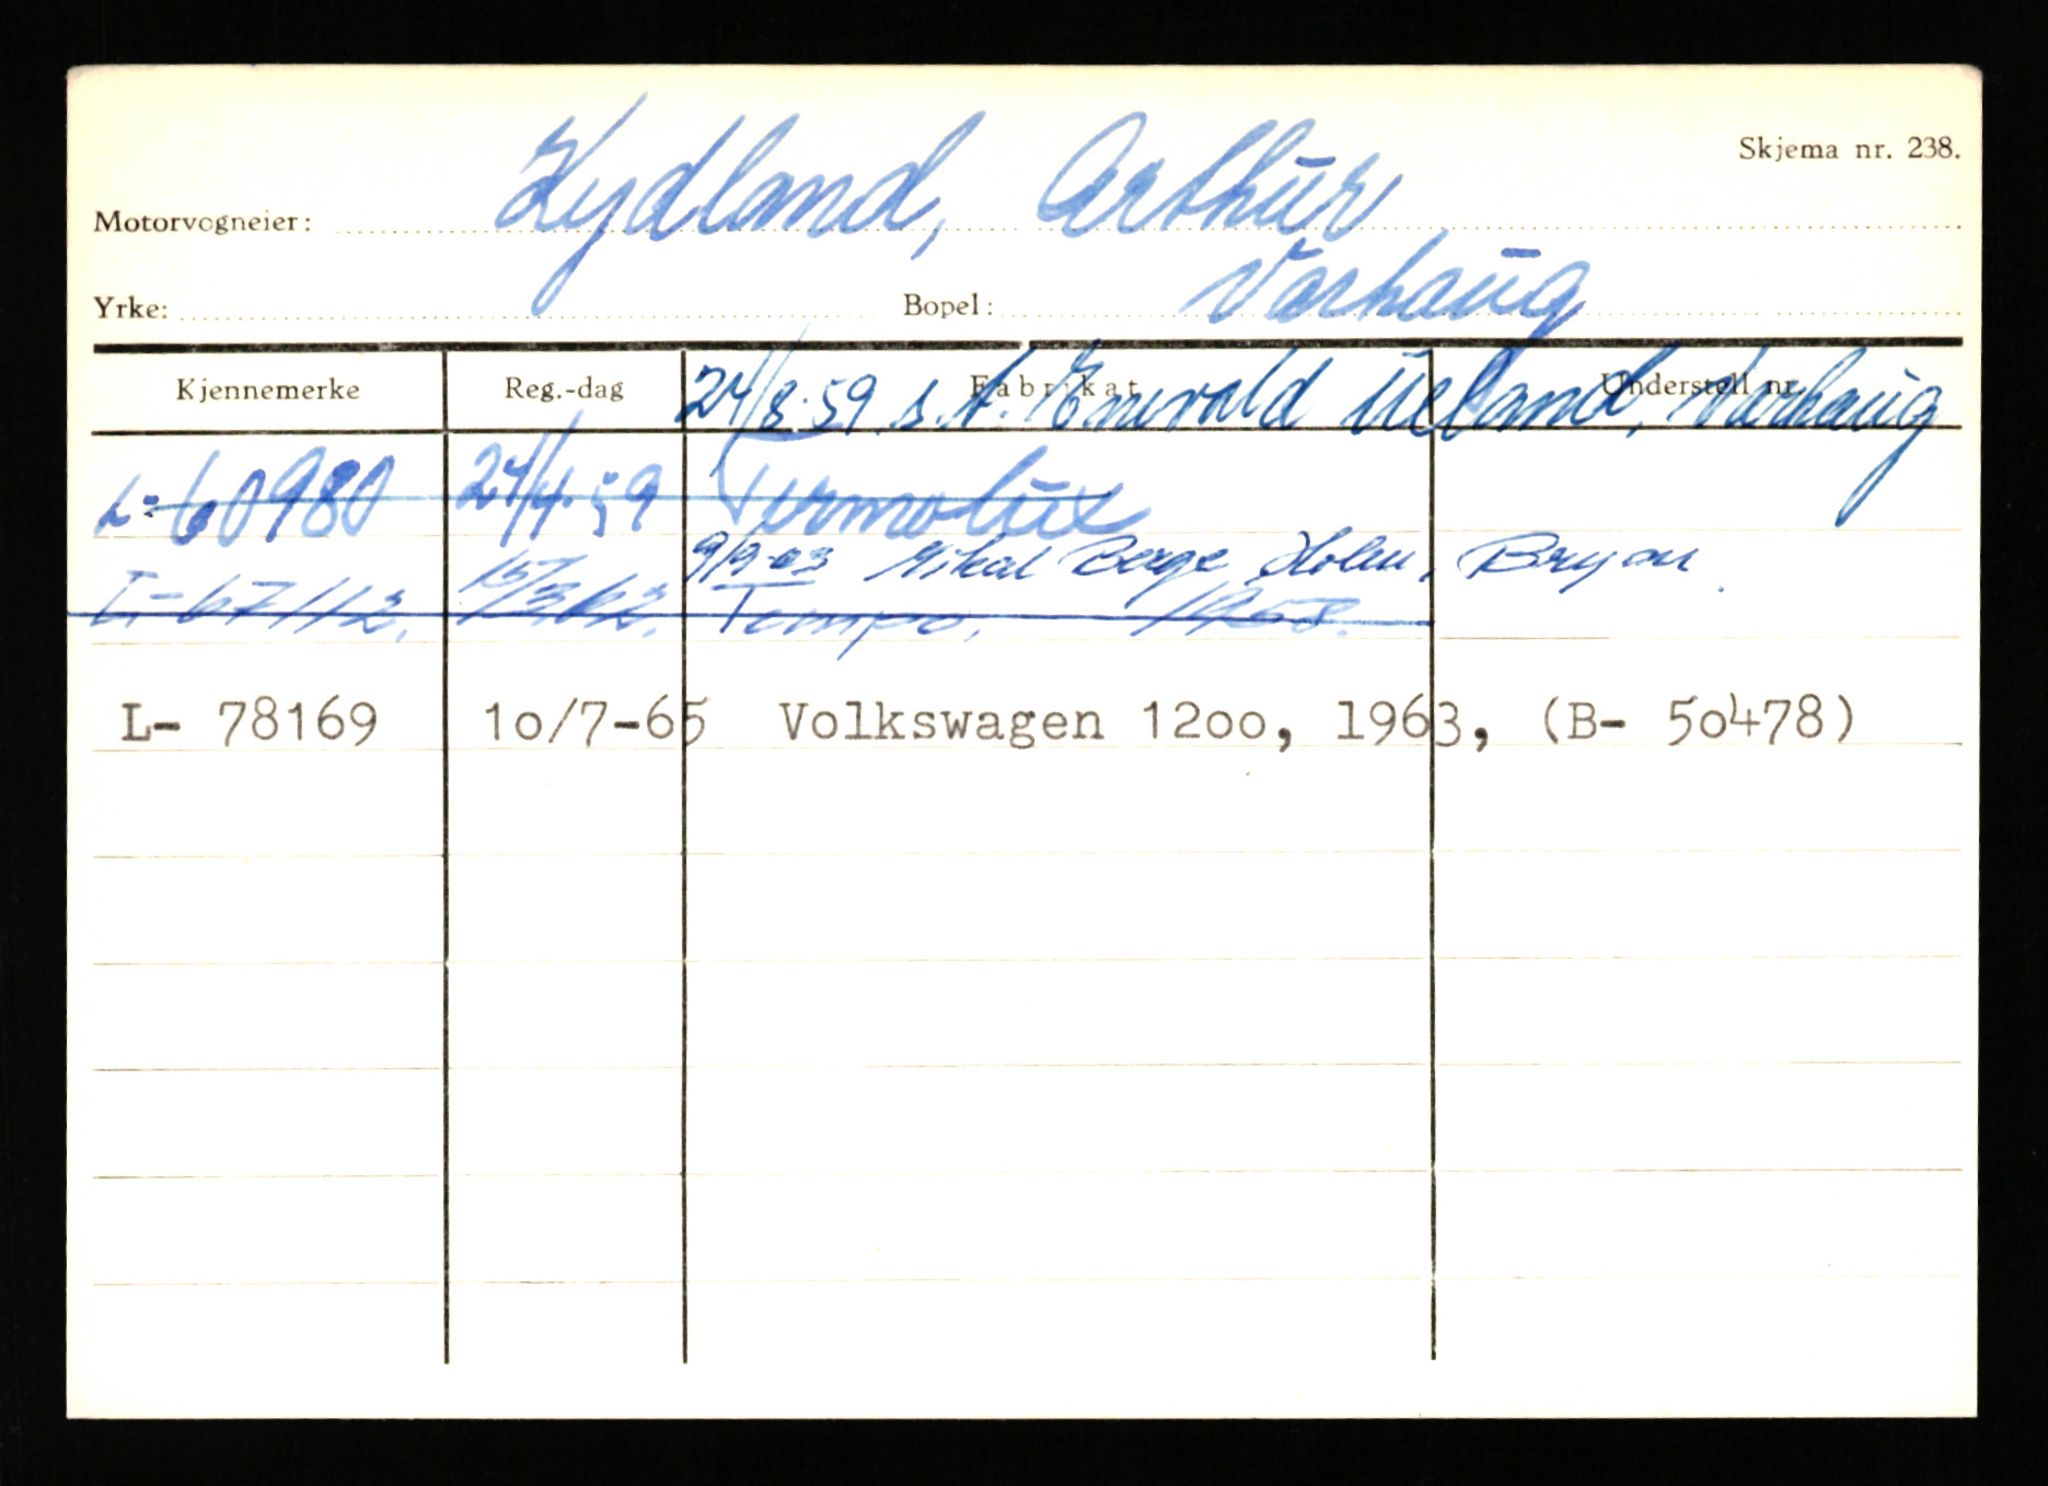 Skjema nr. 238.
Motorvogneier: Lydland, Arthur
Yrke: Bopel: Varhaug
Kjennemerke Reg.-dag Fabrikat Understell nr.
24/8.59 s.å. Enevald Ueland, Varhaug
L-60980 24/4.59 Termolux
9/9-63 Mikal Berge Holm, Bryne
L-67112. 15/3 62. Tempo, 1958.
L- 78169 1o/7-65 Volkswagen 12oo, 1963, (B- 5o478)